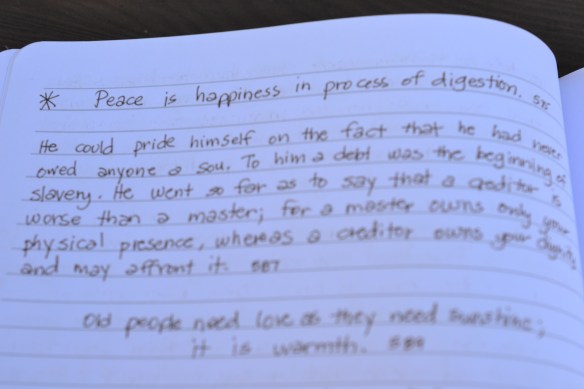 * Peace is happiness in process of digestion. 575
He could pride himself on the fact that he had never
owed anyone a sou. To him a debt was the beginning of
slavery. He went so far as to say that a creditor is
worse than a master; for a master owns only your
physical presence, whereas a creditor owns your dignity
and may affront it. 587
Old people need love as they need sunshine;
it is warmth. 589